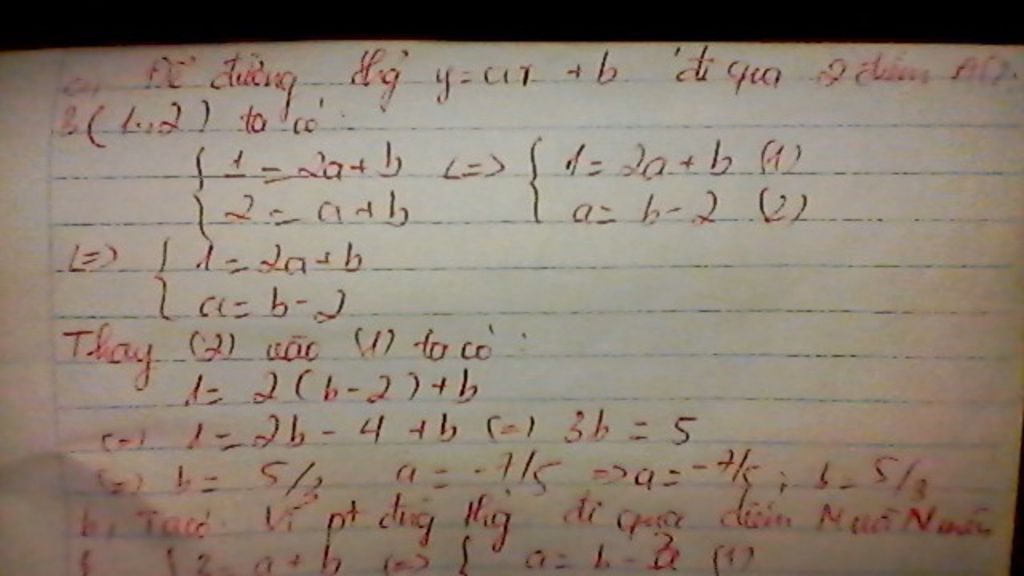 a, Để đường thg y=ax+b đi qua 2 điểm A(2
B(1,2) ta có:
{ 1=2a+b (=) { 1=2a+b (1)
{ 2=a+b { a=b-2 (2)
(=) { 1=2a+b
{ a=b-2
Thay (2) vào (1) ta có:
1=2(b-2)+b
(=) 1=2b-4+b (=) 3b=5
(=) b=5/3 a=-7/5 =>a=-7/5; b=5/3
b, Ta có: Vì pt đug thg đi qua điểm M và N nên
{ {2=a+b (=) { a=b-2 (1)